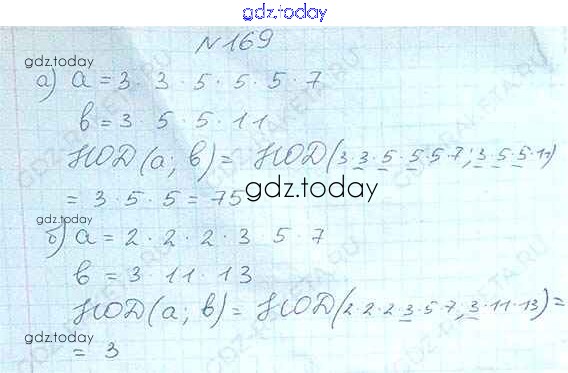 gdz.today
№169
gdz.today
а) a = 3 · 3 · 5 · 5 · 5 · 7
в = 3 · 5 · 5 · 11
НОД(а; в) = НОД(3·3·5·5·5·7; 3·5·5·11)
= 3 · 5 · 5 = 75
gdz.today
б) a = 2 · 2 · 2 · 3 5 · 7
в = 3 · 11 · 13
НОД(а; в) = НОД(2·2·2·3·5·7, 3·11·13) =
gdz.today
= 3